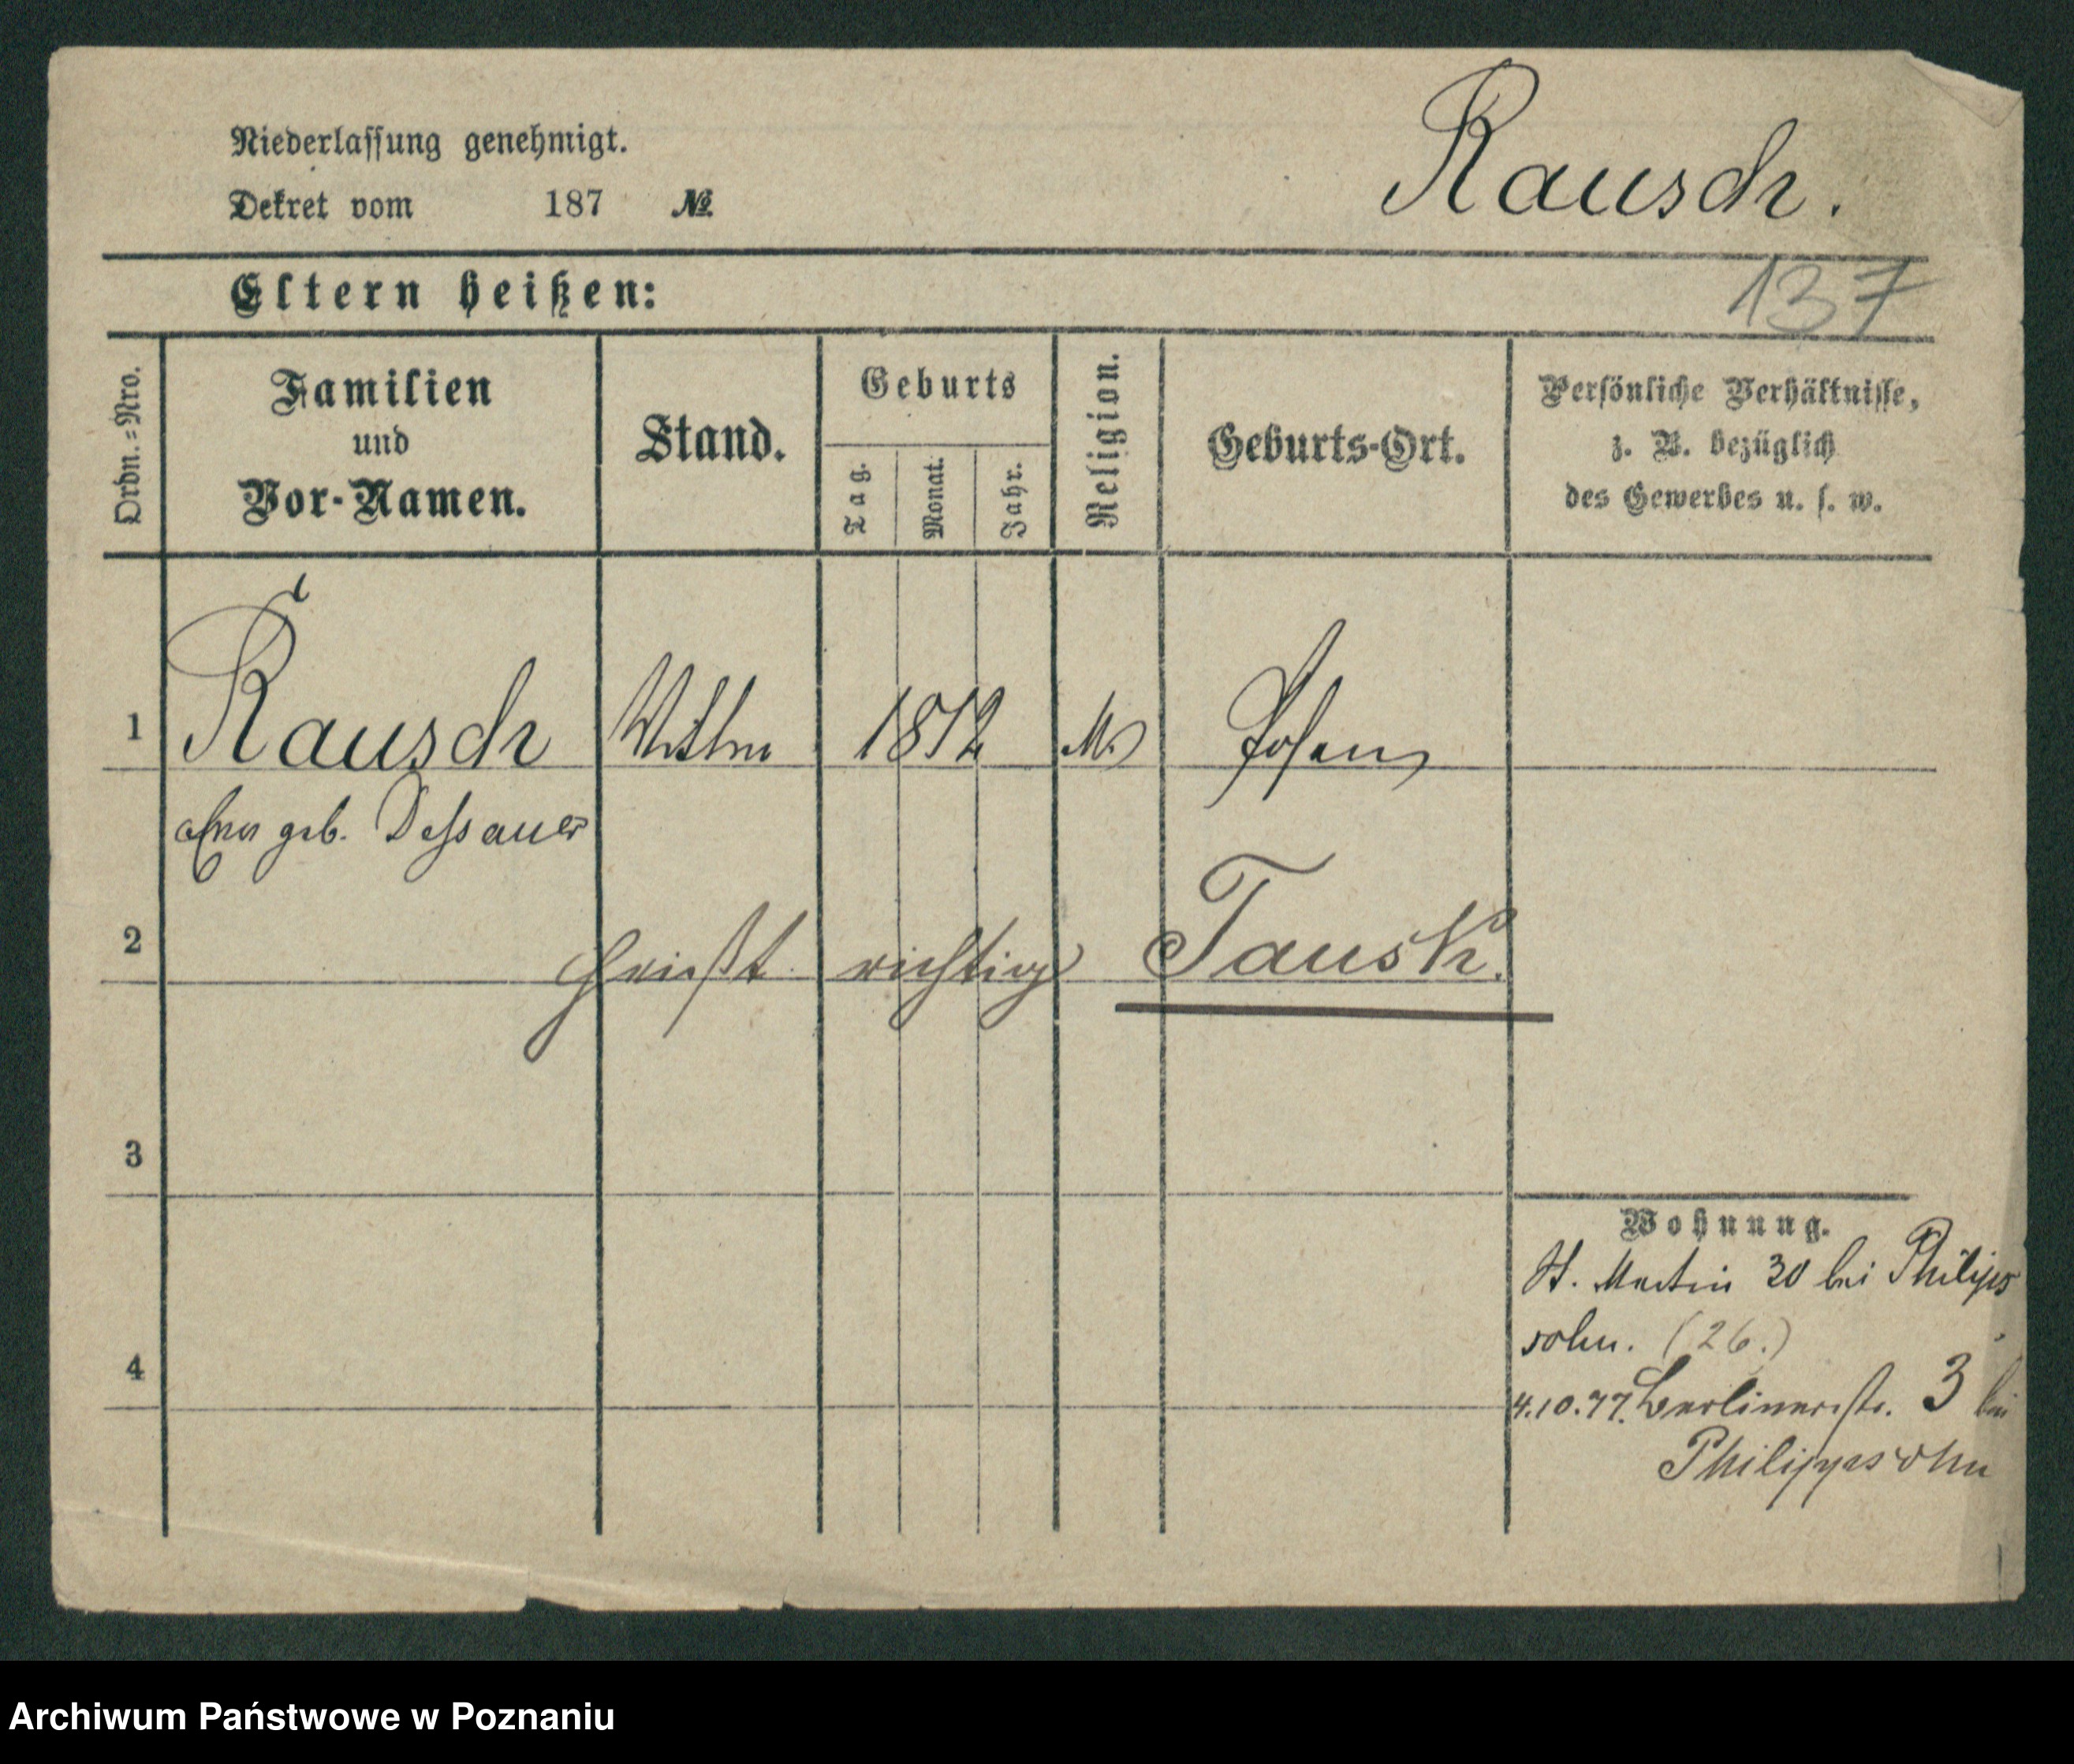 Niederlassung genehmigt.
Dekret vom 187 №
Rausch.
Eltern heißen:
137
Ordn.=Nro.
Familien
und
Vor-Namen.
Stand.
Geburts
Tag.
Monat.
Jahr.
Religion.
Geburts-Ort.
Persönliche Verhältnisse,
z. B. bezüglich
des Gewerbes u. s. w.
1 Rausch 1812 M. Posen
geb. Dessauer
2 heißt richtig Tausk.
3
Wohnung.
St. Martin 30 bei Philipp
sohn. (26.)
4
4.10.77. Berlinerstr. 3 bei
Philippsohn
Archiwum Państwowe w Poznaniu